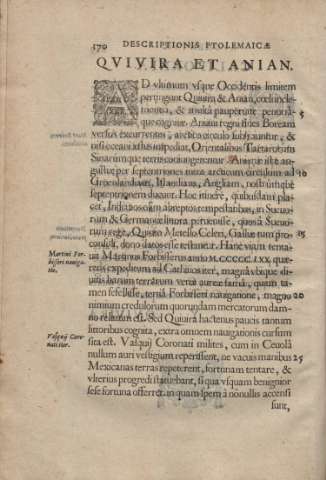 170 DESCRIPTIONIS PTOLEMAICÆ
QVIVIRA ET ANIAN.
AD vltimum vsque Occidentis limitem
pertingunt Quiuira & Anian, cœli incle-
mentia, & incolarum paupertate penitùs 5
que
Aniani regni fines Boream
versùs excurrentes, arctico circulo subijciuntur, &
nisi oceani usus impediat, Orientalibus Tartarorum
Sinarumque terris coniungerentur. Anian iste an-
gustus per septentriones intra arcticum circulum ad 10
Groenlandiam, Islandiam, Angliam, nostrumque
septentrionem ducunt. Hoc itinere, quibusdam pla-
cet, Indicos olim abreptos tempestatibus, in Sueuo-
rum & Germaniæ littora peruenisse, quos à Sueuo-
rum rege, Quinto Metello Celeri, Galliæ tum pro- 15
consuli, dono datos esse testantur. Hanc viam tenta-
uit Martinus Forbisserius anno M.CCCCC.LXX, quæ-
rens expeditum ad Cathaios iter, magnáque
Martini For-
bisseri nauiga-
tio.
fefellisse, testa Forbisseri nauigatione, magno 20
nimium credulorum quorundam mercatorum dam-
no relatum est. Sed Quiuira hactenus paucis tantum
littoribus cognita, extra omnem nauigationis cursum
sita est. Vasquij Coronati milites, cum in Ceuola
Vasquij Coro-
nati iter.
nullum auri vestigium reperissent, ne vacuis manibus 25
Mexicanas terras repeterent, fortunam tentare, &
vlterius progredi statuebant, si qua vsquam benignior
sese fortuna offerret. in quam spem à nonullis accensi
sunt,